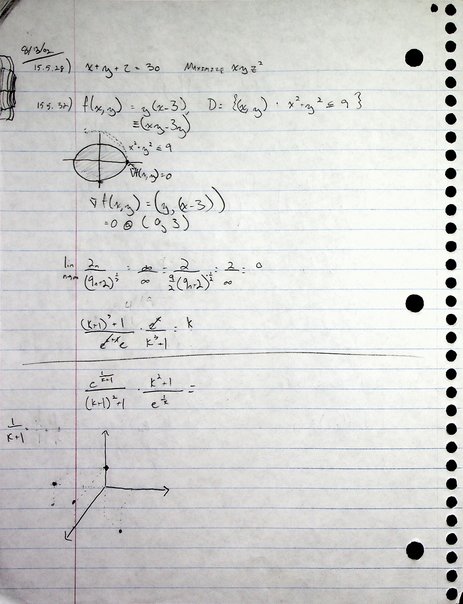 8/3/02
15.5.28) x+y+z = 30 Maximize xyz²
15.5.32) f(x,y) = y(x-3) D: {(x,y) · x²+y² ≤ 9}
=(xy-3y)
x²+y² ≤ 9
∇f(x,y)=0
∇f(x,y) = (y,(x-3))
=0 @ (0,3)
lim n→∞ 2n/(9n+2)^½ = ∞/∞ = 2/(9/2(9n+2)^-½) = 2/∞ = 0
((k+1)³+1)/(e^k e) · e^k/(k³+1) = k
e^(1/(k+1))/((k+1)²+1) · (k²+1)/e^(1/k) =
1/(k+1)